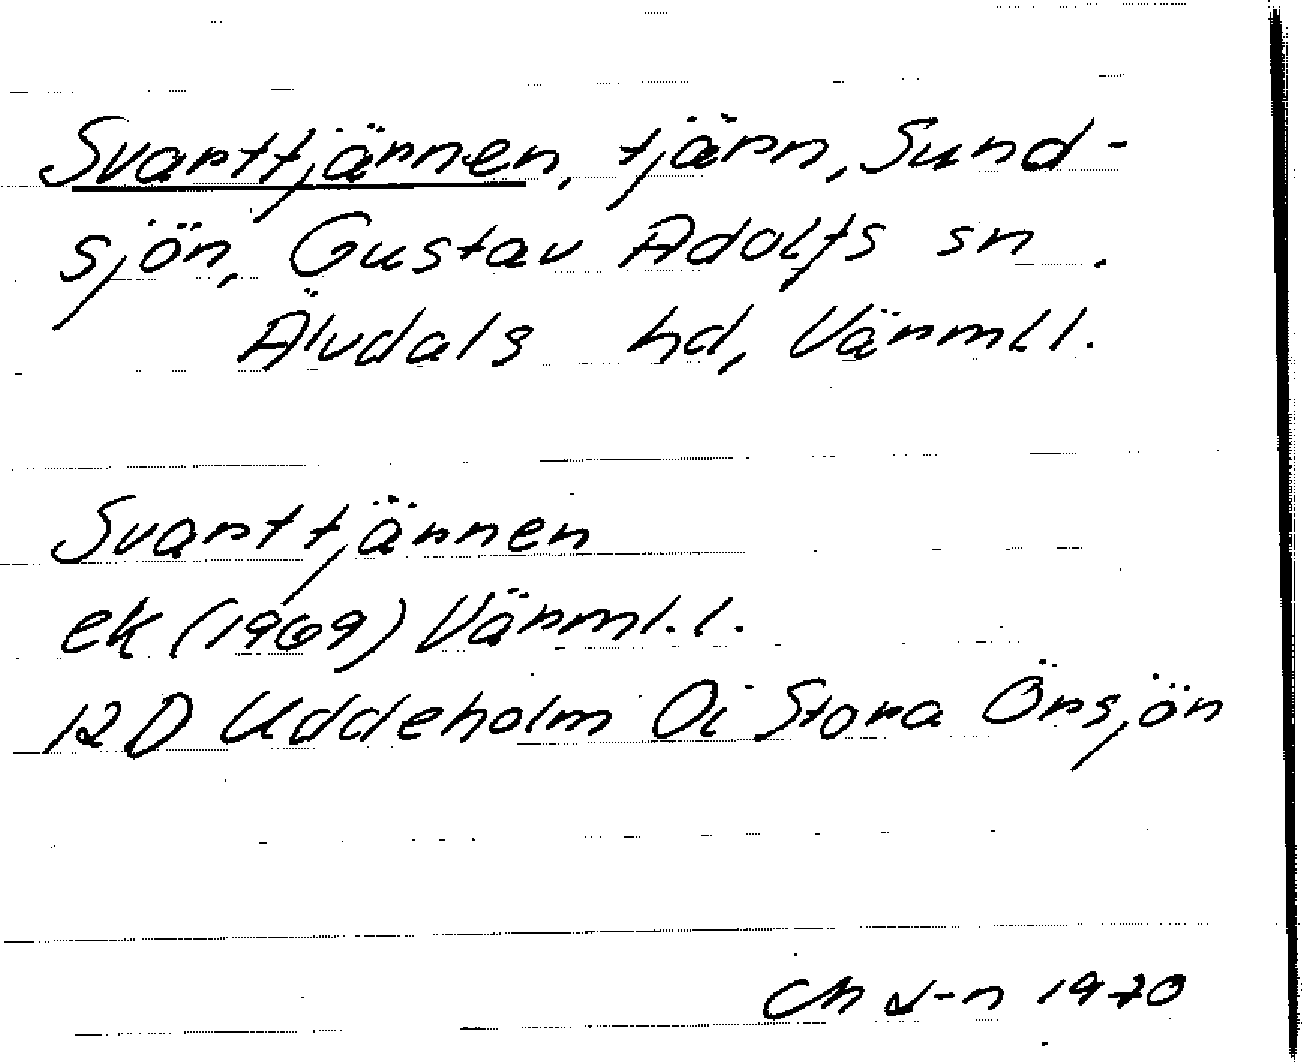 Svarttjärnen, tjärn, Sund-
sjön, Gustav Adolfs sn.
Älvdals hd, Värml l.
Svarttjärnen
ek (1969) Värml. l.
12D Uddeholm 0i Stora Örsjön
Ch J-n 1970